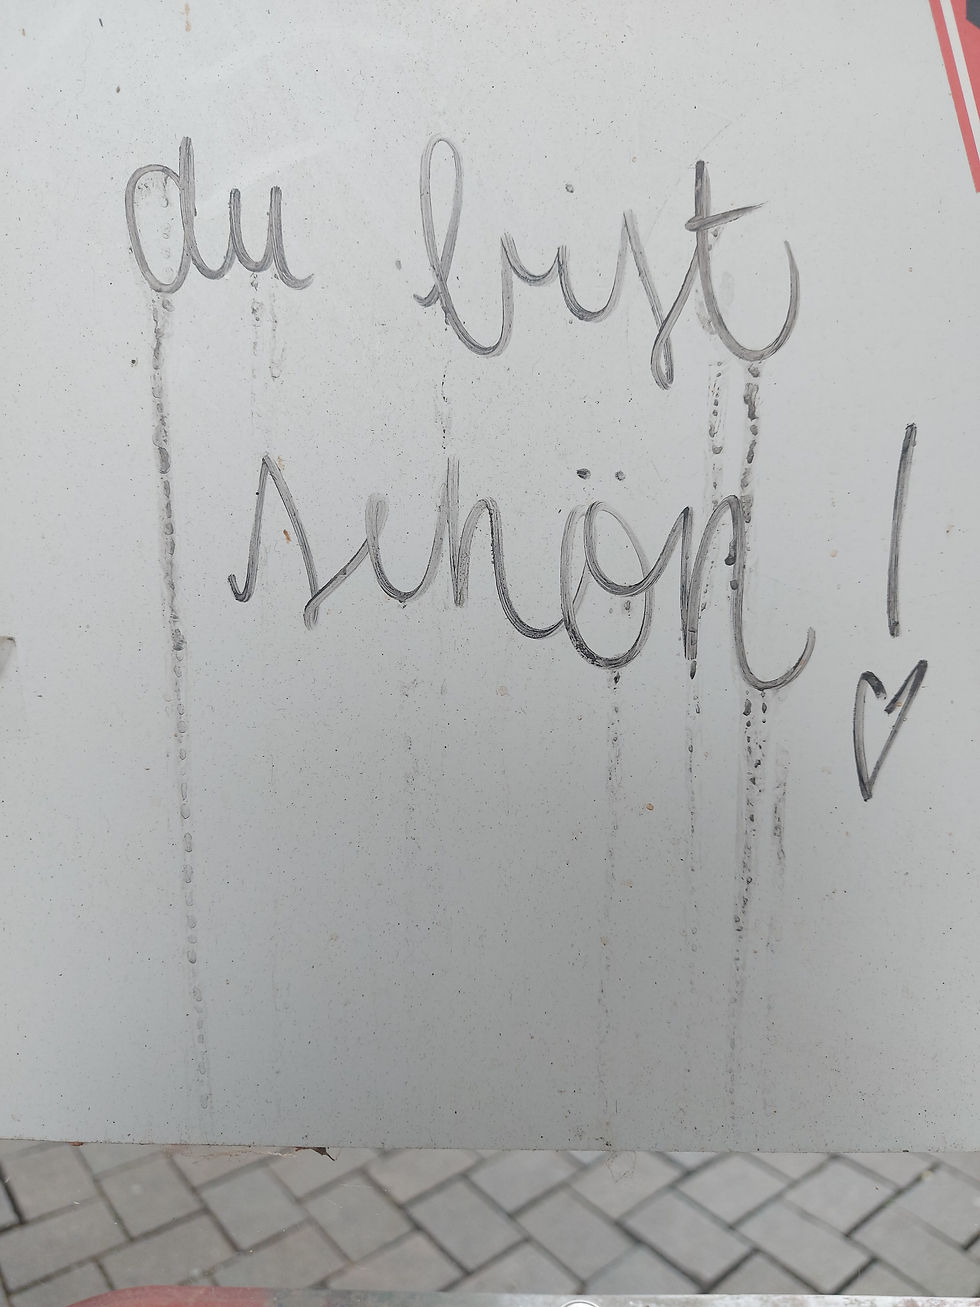 du bist
schön!